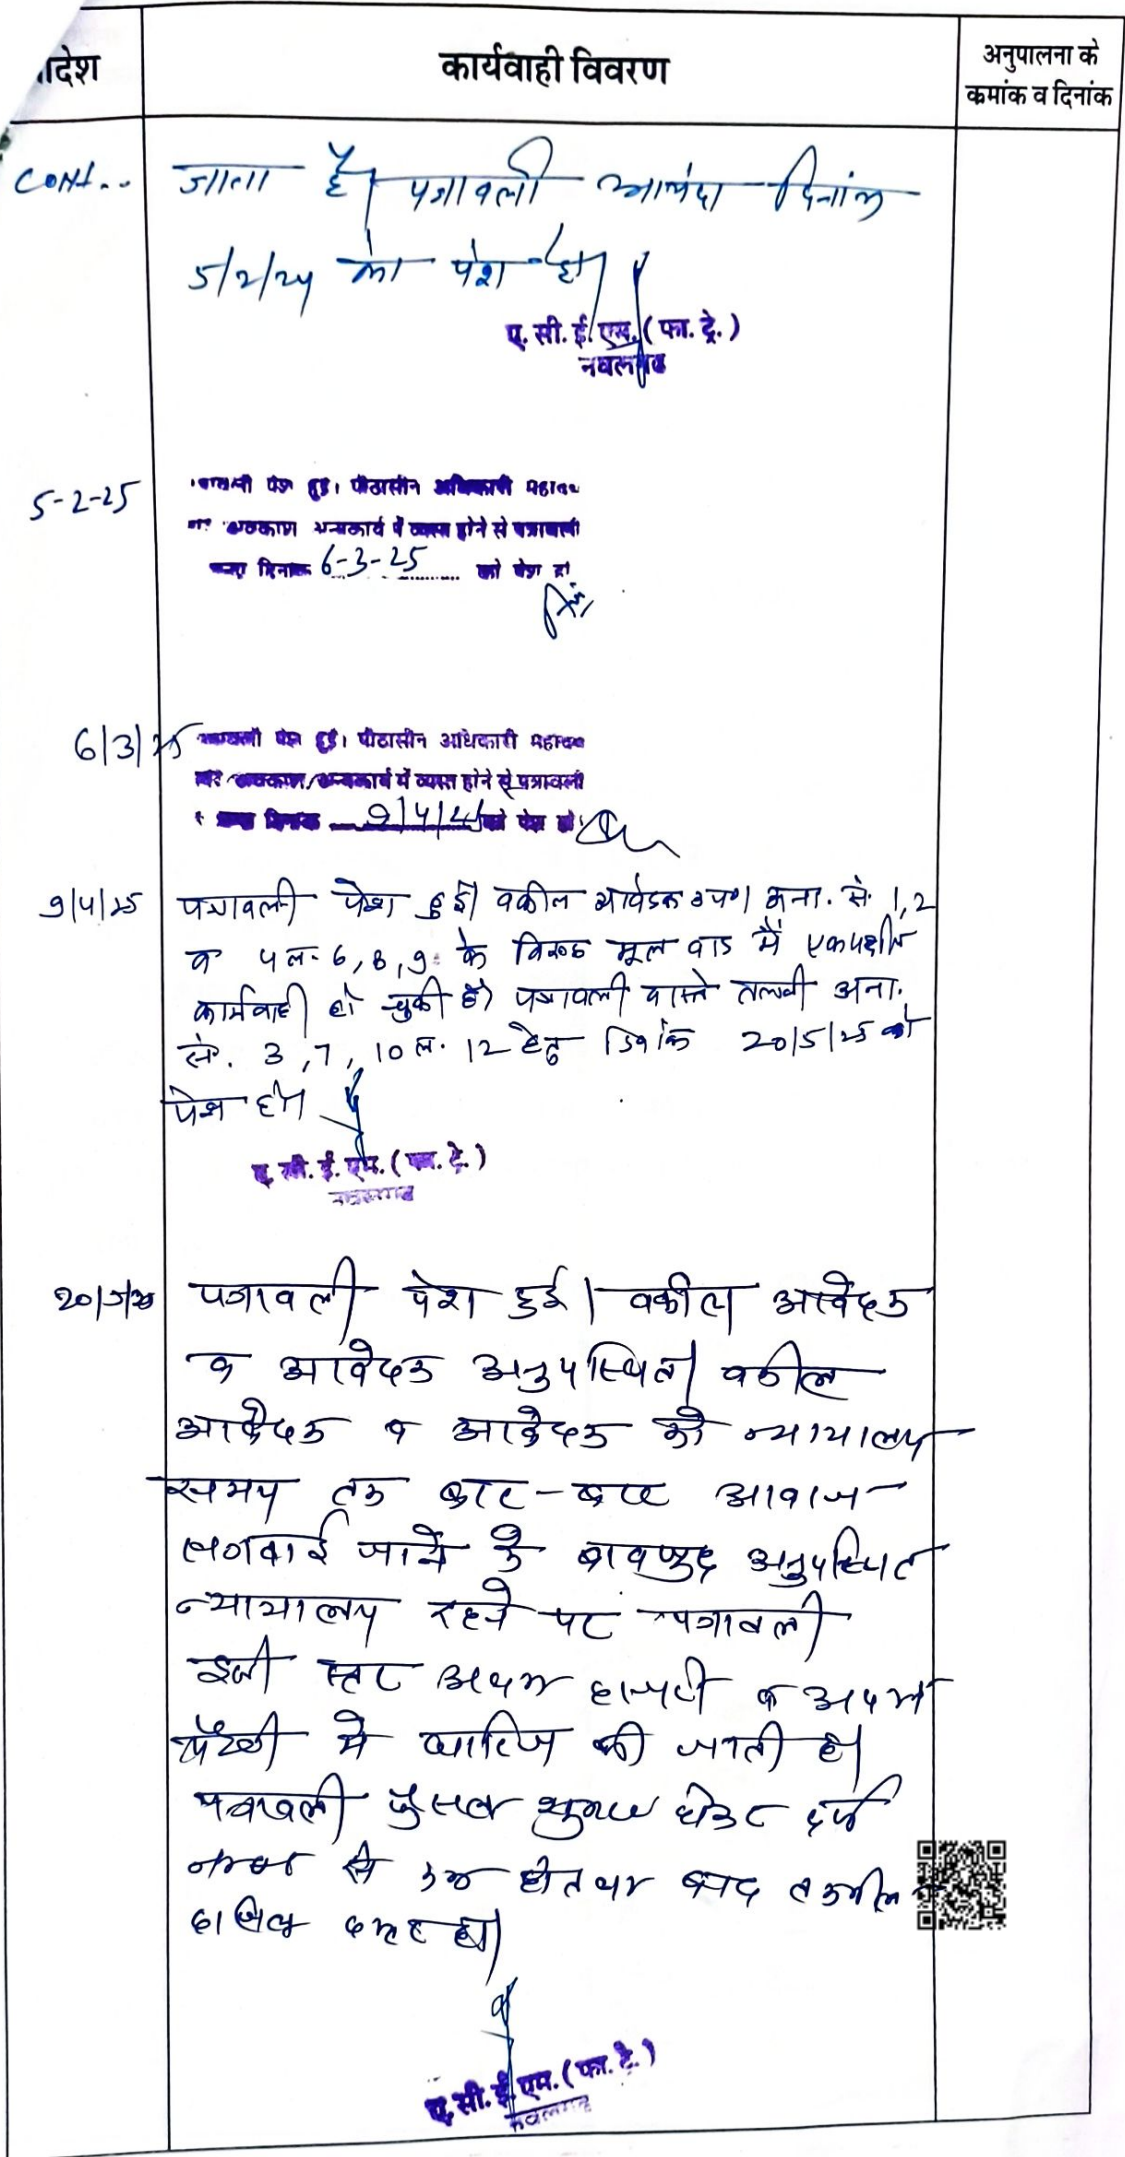 ादेश
कार्यवाही विवरण
अनुपालना के
कमांक व दिनांक
CONt.. जाता है। पत्रावली आयंदा दिनांक
5/2/25 को पेश हो।
ए. सी. ई. एम. (फा. ट्रे.)
नवलगढ
5-2-25
पेश हुई। पीठासीन अधिकारी महोदय
अवकाश अन्यकार्य में व्यस्त होने से पत्रावली
दिनांक 6-3-25 को पेश हो
6/3/25
पेश हुई। पीठासीन अधिकारी महोदय
अवकाश/अन्यकार्य में व्यस्त होने से पत्रावली
दिनांक 9/4/25 को पेश हो
9/4/25
पत्रावली पेश हुई। वकील आवेदक उप। अना. सं. 1,2
व 4 ल. 6, 8, 9 के विरूद्ध मूल वाद में एकपक्षीय
कार्यवाही हो चुकी है। पत्रावली वास्ते तलबी अना.
सं. 3, 7, 10 ल. 12 हेतु दिनांक 20/5/25 को
पेश हो।
ए. सी. ई. एम. (फा. ट्रे.)
नवलगढ
20/5/25
पत्रावली पेश हुई। वकील आवेदक
व आवेदक अनुपस्थित। वकील
आवेदक व आवेदक को न्यायालय
समय तक बार-बार आवाज
लगवाई जाने के बावजुद अनुपस्थित
न्यायालय रहने पर पत्रावली
इसी स्तर अदम हाजरी व अदम
पैरवी में खारिज की जाती है।
पत्रावली फैसल शुमार होकर दर्ज
नम्बर से कम होकर बाद तकमील
दाखिल दफ्तर हो।
ए. सी. ई. एम. (फा. ट्रे.)
नवलगढ